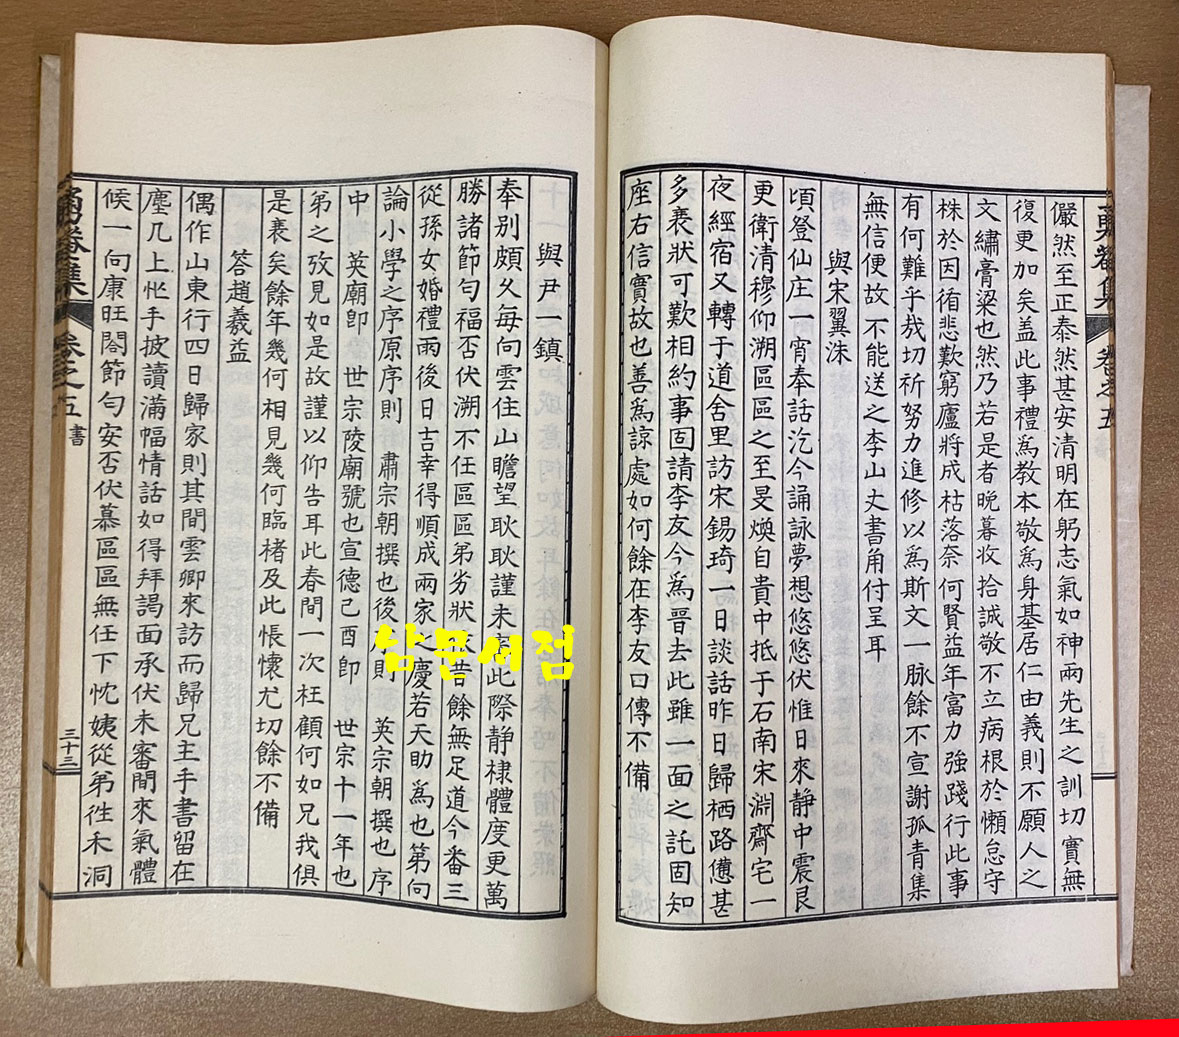 儼然至正泰然甚安清明在躬志氣如神兩先生之訓切實無
復更加矣盖此事禮爲教本敬爲身基居仁由義則不願人之
文繡膏梁也然乃若是者晩暮收拾誠敬不立病根於懶怠守
株於因循悲歎窮廬將成枯落奈何賢益年富力強踐行此事
有何難乎㢤切祈努力進修以爲斯文一脉餘不宣謝孤青集
無信便故不能送之李山丈書角付呈耳
與宋翼洙
頃登仙庄一宵奉話汔今誦詠夢想悠悠伏惟日來靜中震艮
更衛清穆仰溯區區之至旻煥自貴中抵于石南宋淵齋宅一
夜經宿又轉于道舍里訪宋錫琦一日談話昨日歸栖路憊甚
多表狀可歎相約事固請李友今爲晋去此雖一面之託固知
座右信實故也善爲諒處如何餘在李友口傳不備
卷之五
與尹一鎮
奉別頗久每向雲住山瞻望耿耿謹未 此際靜棣體度更萬
勝諸節勻福否伏溯不任區區弟劣狀 昔餘無足道今番三
從孫女婚禮雨後日吉幸得順成兩家之慶若天助爲也第向
論小學之序原序則 肅宗朝撰也後 則 英宗朝撰也序
中 英廟卽 世宗陵廟號也宣德己酉卽 世宗十一年也
弟之攷見如是故謹以仰告耳此春間一次枉顧何如兄我俱
是衰矣餘年幾何相見幾何臨楮及此悵懷尤切餘不備
答趙羲益
偶作山東行四日歸家則其間雲卿來訪而歸兄主手書留在
塵几上忙手披讀滿幅情話如得拜謁面承伏未審間來氣體
候一向康旺閤節勻安否伏慕區區無任下忱姨從弟徃禾洞
卷之五 書
三十三
삼문서점